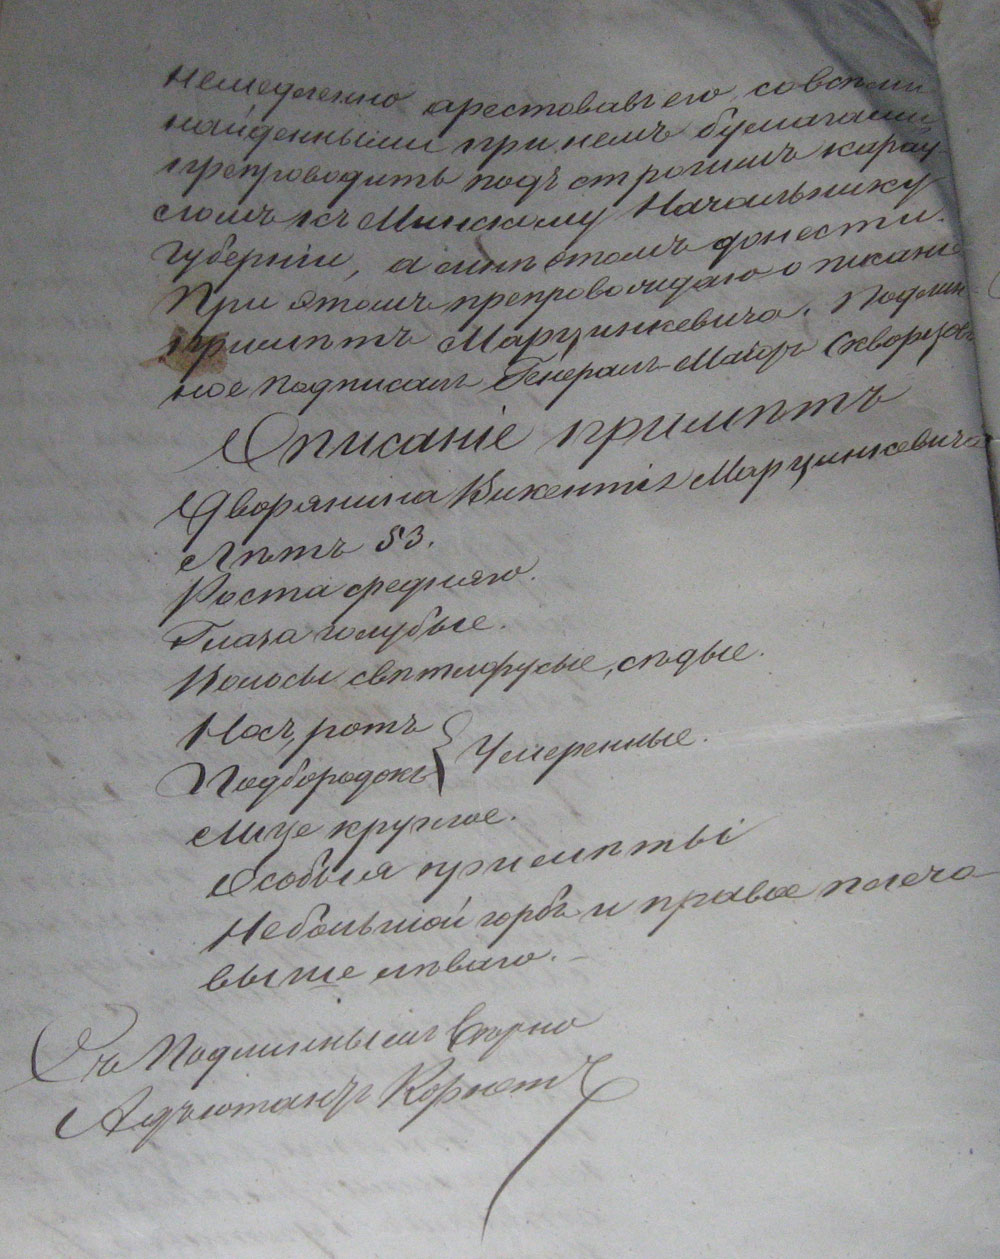 немедленно арестовавъ его, со всѣми
найденными при немъ бумагами
препроводить подъ строгимъ карау-
ломъ къ Минскому Начальнику
Губерніи, а мнѣ о томъ донести.
При этомъ препровождаю описаніе
примѣтъ Марцинкевича. Подлин-
ное подписалъ Генералъ-Маіоръ Скворцовъ
Описаніе примѣтъ
Дворянина Викентія Марцинкевича
Лѣтъ 53.
Роста средняго.
Глаза голубые.
Волосы свѣтлорусые, сѣдые.
Носъ, ротъ
Подбородокъ } Умеренные.
Лице круглое.
Особыя примѣты
Небольшой горбъ и правое плечо
выше лѣваго.
Съ Подлиннымъ Вѣрно
Адъютантъ Корнетъ